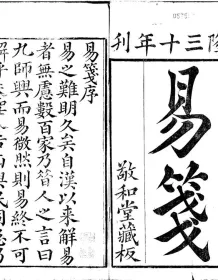 隆三十年刊
易箋
敬和堂藏板
易箋序
易之難明久矣自漢以來解易
者無慮數百家乃昔人之言曰
九師興而易微然則易終不可